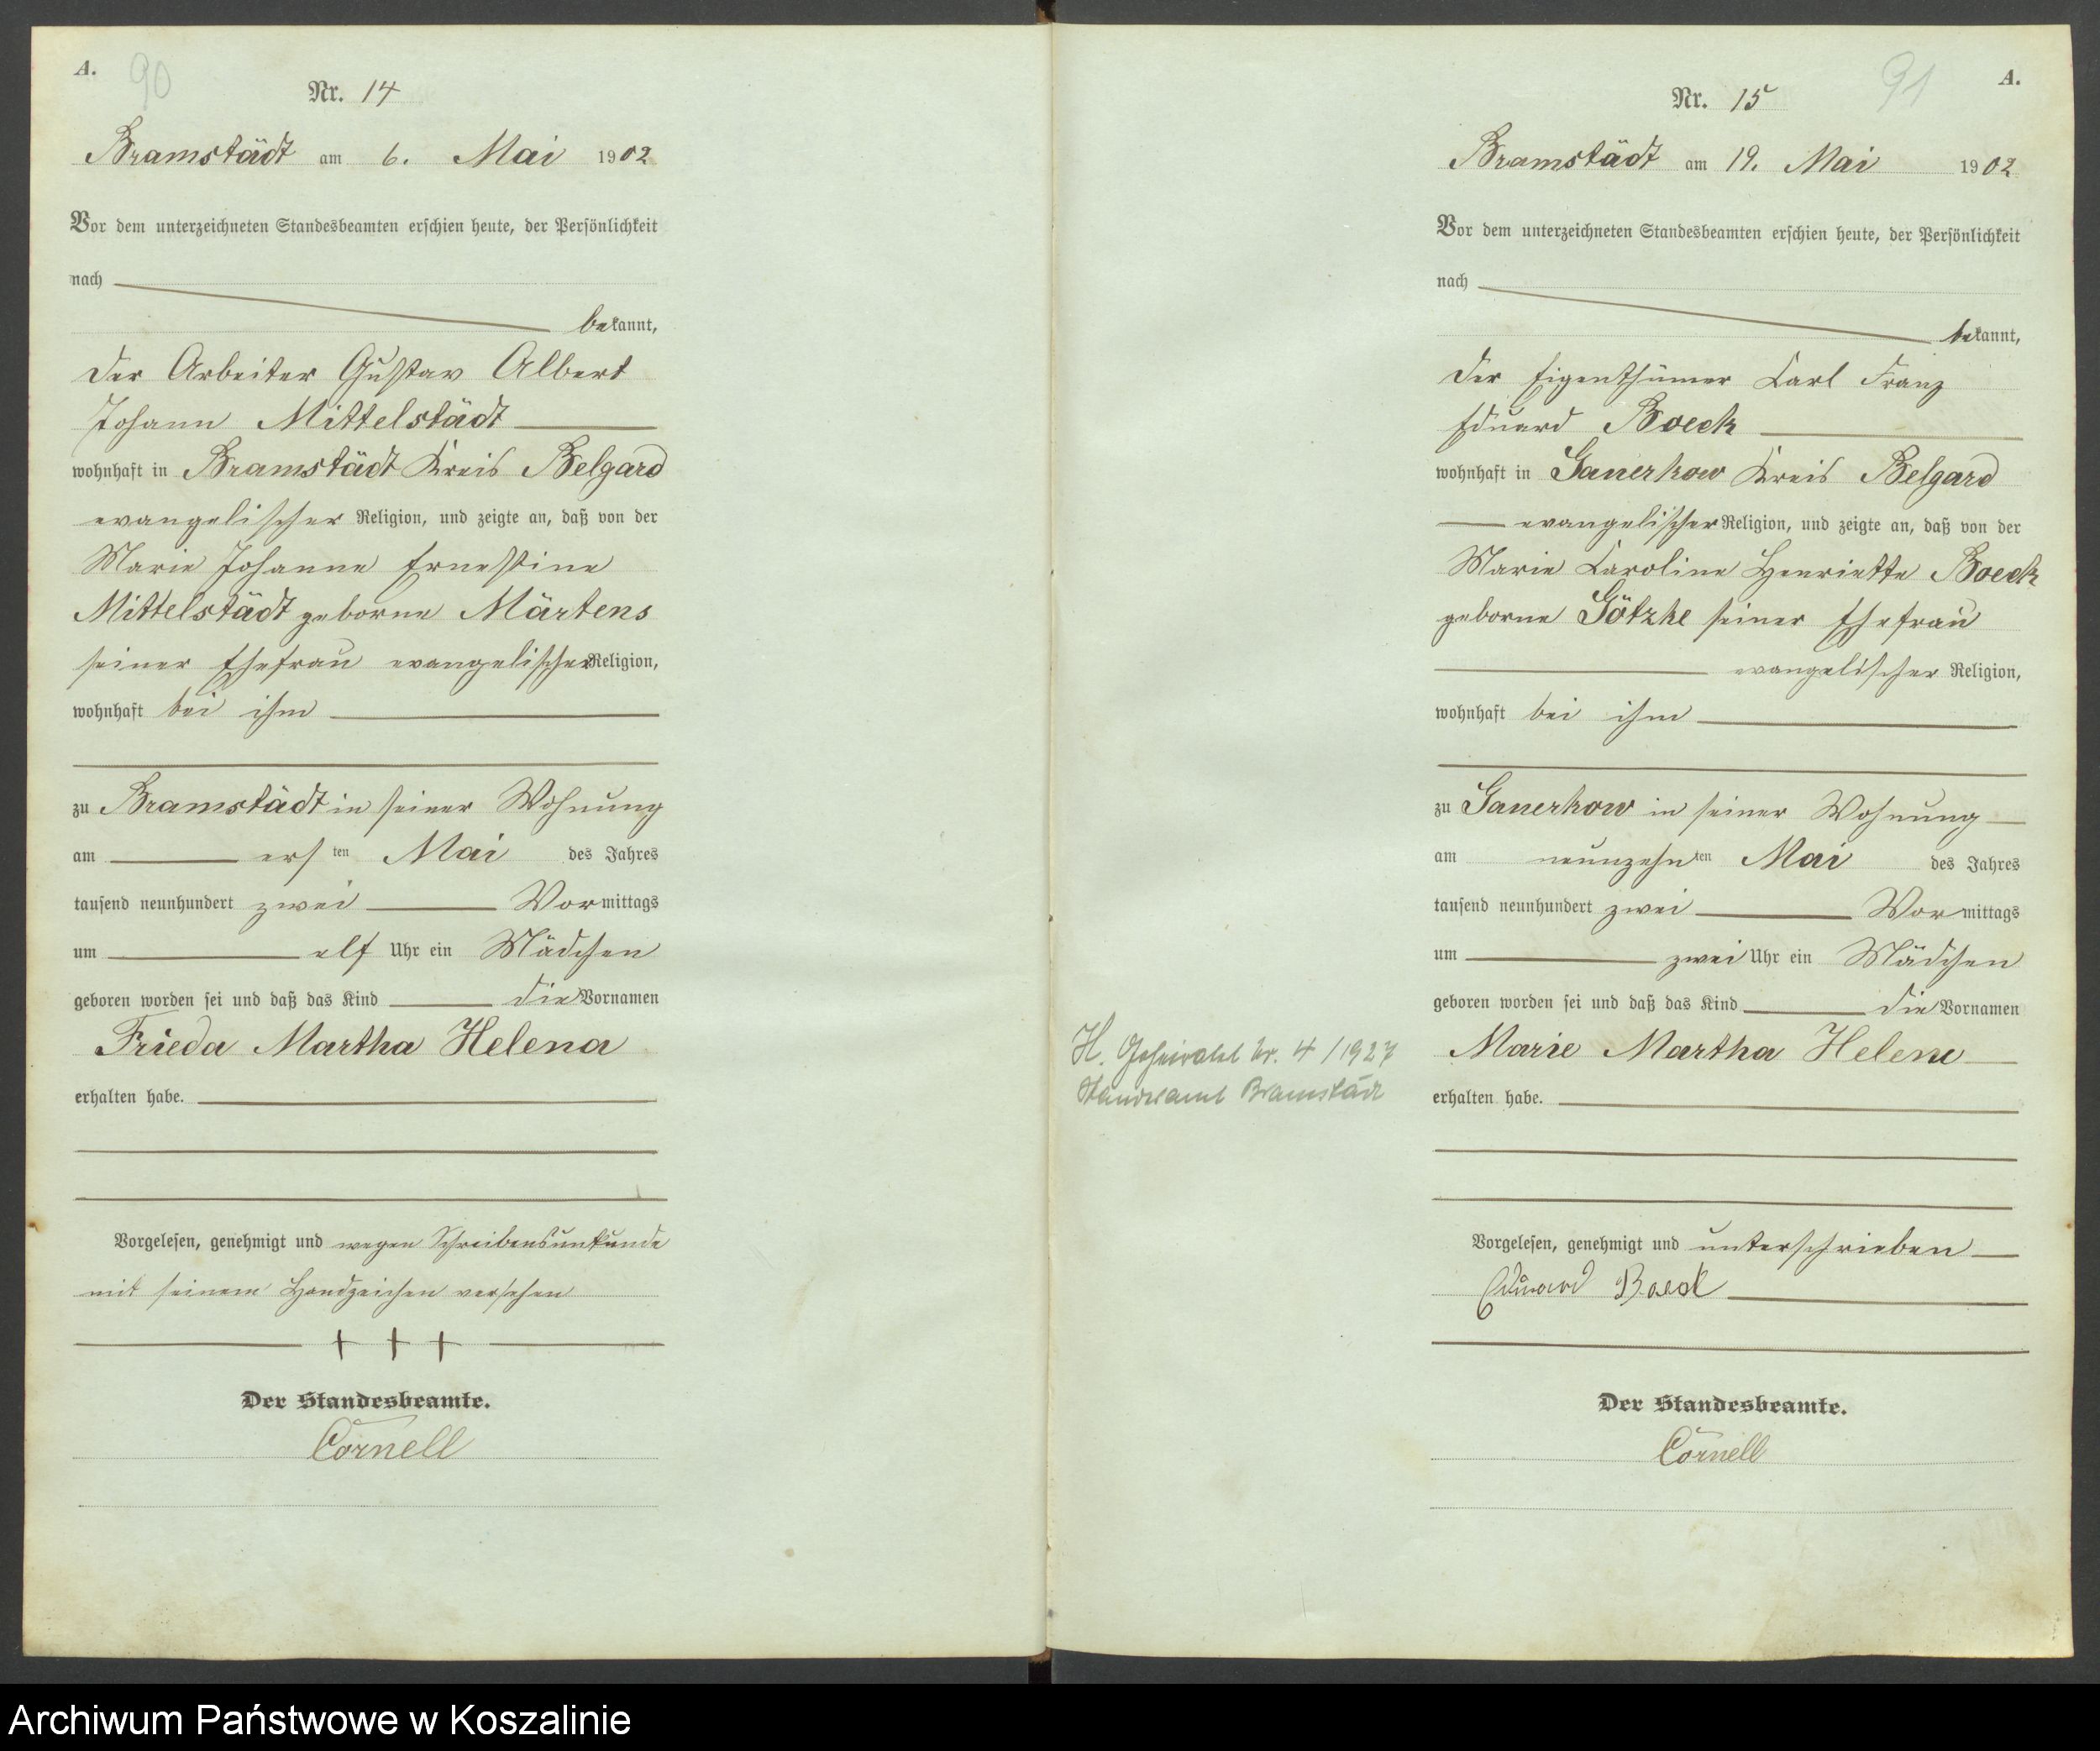 A.
90
Nr. 14
Bramstädt am 6. Mai 1902
Vor dem unterzeichneten Standesbeamten erschien heute, der Persönlichkeit
nach
bekannt,
der Arbeiter Gustav Albert
Johann Mittelstädt
wohnhaft in Bramstädt Kreis Belgard
evangelischer Religion, und zeigte an, daß von der
Marie Johanne Ernestine
Mittelstädt geborne Märtens
seiner Ehefrau evangelischer Religion,
wohnhaft bei ihm
zu Bramstädt in seiner Wohnung
am ersten Mai des Jahres
tausend neunhundert zwei Vormittags
um elf Uhr ein Mädchen
geboren worden sei und daß das Kind die Vornamen
Frieda Martha Helena
erhalten habe.
Vorgelesen, genehmigt und wegen Schreibensunkunde
mit seinem Handzeichen versehen
+ + +
Der Standesbeamte.
Cornell
91
A.
Nr. 15
Bramstädt am 19. Mai 1902
Vor dem unterzeichneten Standesbeamten erschien heute, der Persönlichkeit
nach
bekannt,
der Eigenthümer Carl Franz
Eduard Boeck
wohnhaft in Ganerkow Kreis Belgard
evangelischer Religion, und zeigte an, daß von der
Marie Caroline Henriette Boeck
geborne Götzke seiner Ehefrau
evangelischer Religion,
wohnhaft bei ihm
zu Ganerkow in seiner Wohnung
am neunzehnten Mai des Jahres
tausend neunhundert zwei Vormittags
um zwei Uhr ein Mädchen
geboren worden sei und daß das Kind die Vornamen
Marie Martha Helene
erhalten habe.
H. Geheiratet Nr. 4/1927
Standesamt Bramstädt
Vorgelesen, genehmigt und unterschrieben
Eduard Boeck
Der Standesbeamte.
Cornell
Archiwum Państwowe w Koszalinie